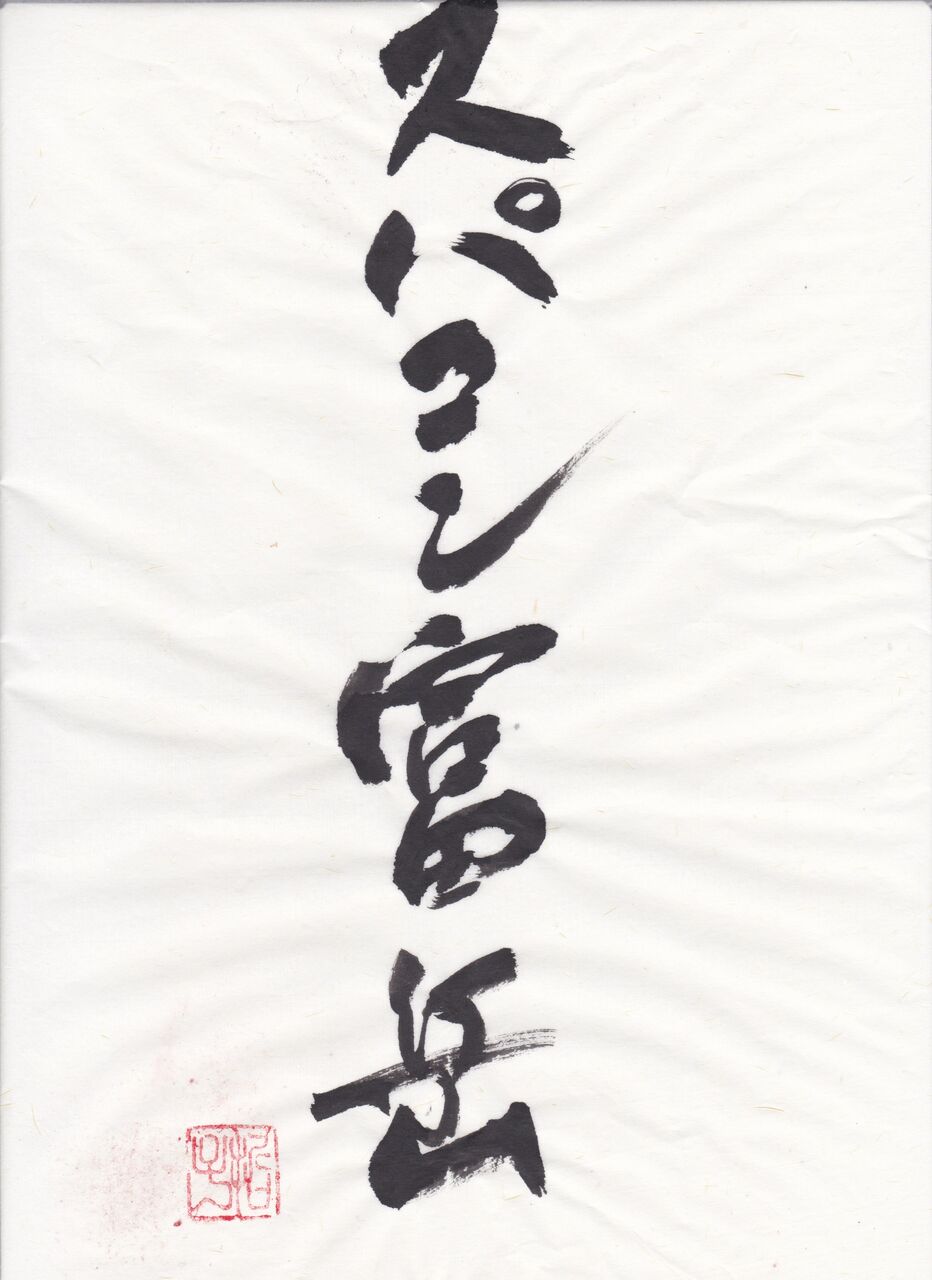 スパコン富岳